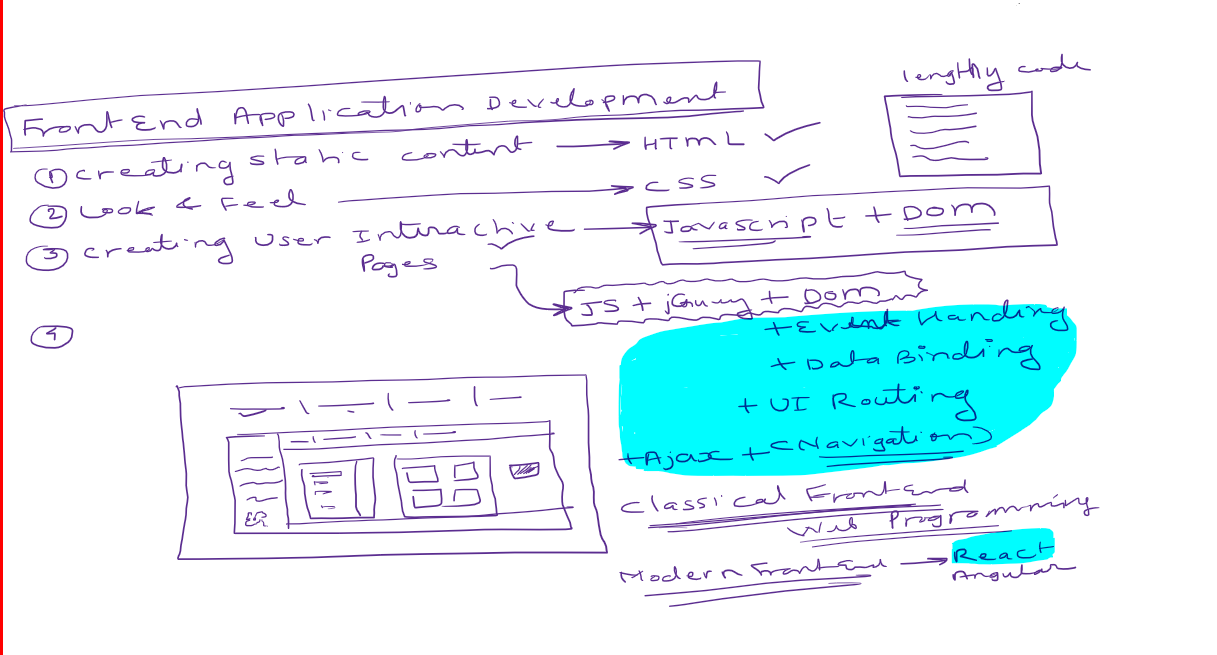 lengthy code
FrontEnd Application Development
① Creating static content → HTML ✓
② Look & Feel → CSS ✓
③ Creating User Interactive → Javascript + DOM
Pages
JS + jQuery + DOM
+ Event Handing
④
+ Data Binding
+ UI Routing
+ Ajax + (Navigation)
Classical FrontEnd
Web Programming
Modern FrontEnd → React
Angular